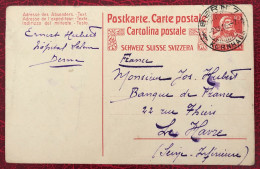 Postkarte. Carte postale
Cartolina postale
SCHWEIZ SUISSE SVIZZERA
Adresse des Absenders. - Text.
Adresse de l'expéditeur. - Texte.
Indirizzo del mittente. - Testo.
BERN
Ernest Hubert
Hôpital
Berne
France
Monsieur Jos. Hubert
Banque de France
22 rue Thiers
Le Havre
(Seine Inférieure)